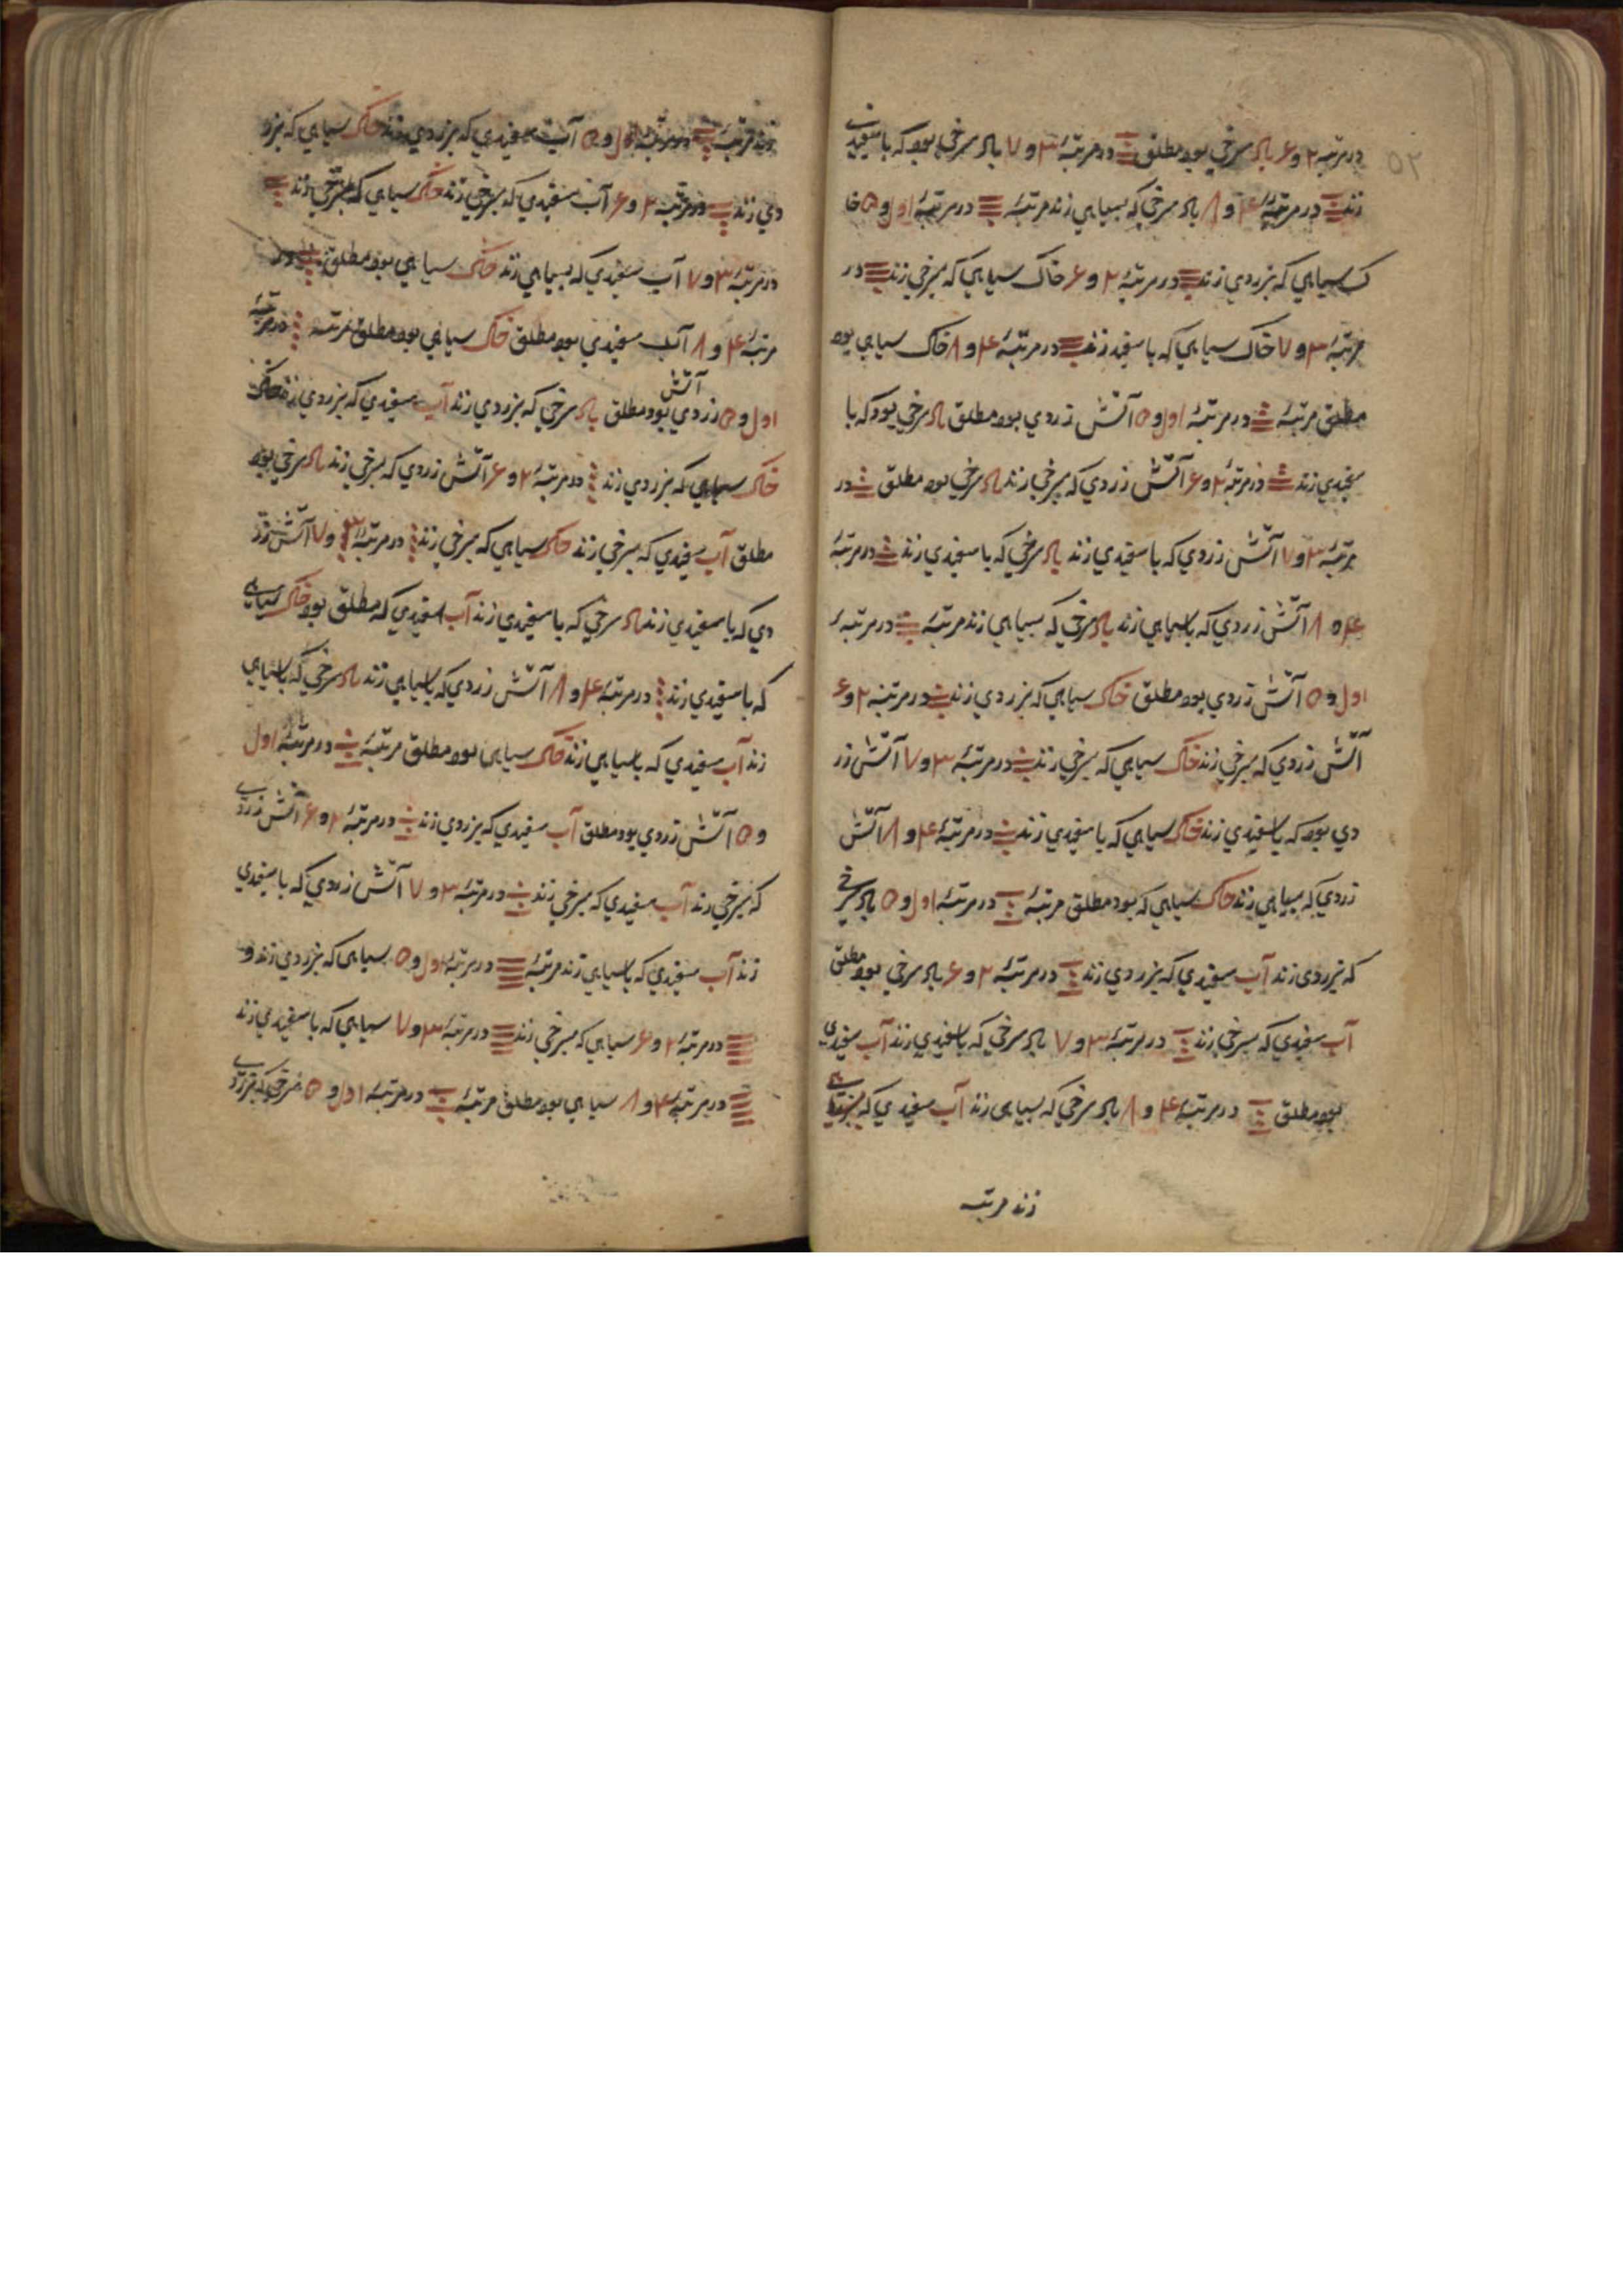 ۵۲
در مرتبه ۲ و ۶ باد سرخی بود مطلق در مرتبهٔ ۳ و ۷ باد سرخی بود که با سفیدی
زند در مرتبهٔ ۴ و ۸ باد سرخی که بسیاهی زند مرتبهٔ در مرتبهٔ اول و ۵ خا
ک سیاهی که بزردی زند در مرتبهٔ ۲ و ۶ خاک سیاهی که بسرخی زند در
مرتبهٔ ۳ و ۷ خاک سیاهی که با سفید زند در مرتبهٔ ۴ و ۸ خاک سیاهی بود
مطلق مرتبهٔ در مرتبهٔ اول و ۵ آتش زردی بود مطلق باد سرخی بود که با
سفیدی زند در مرتبهٔ ۲ و ۶ آتش زردی که بسرخی زند باد سرخی بود مطلق در
مرتبهٔ ۳ و ۷ آتش زردی که با سفیدی زند باد سرخی که با سفیدی زند در مرتبهٔ
۴ ۵ ۸ آتش زردی که باسیاهی زند باد سرخی که بسیاهی زند مرتبهٔ در مرتبهٔ
اول و ۵ آتش زردی بود مطلق خاک سیاهی که بزردی زند در مرتبه ۲ و ۶
آتش زردی که بسرخی زند خاک سیاهی که بسرخی زند در مرتبهٔ ۳ و ۷ آتش زر
دی بود که با سفیدی زند خاک سیاهی که با سفیدی زند در مرتبهٔ ۴ و ۸ آتش
زردی که بسیاهی زند خاک سیاهی که بود مطلق مرتبهٔ در مرتبهٔ اول و ۵ باد سرخی
که بزردی زند آب سفیدی که بزردی زند در مرتبهٔ ۲ و ۶ باد سرخی بود مطلق
آب سفیدی که بسرخی زند در مرتبهٔ ۳ و ۷ باد سرخی که با سفیدی زند آب سفیدی
بود مطلق در مرتبهٔ ۴ و ۸ باد سرخی که بسیاهی زند آب سفیدی که
زند مرتبه
زند مرتبهٔ در مرتبهٔ اول و ۵ آب سفیدی که بزردی زند خاک سیاهی که بزر
دی زند در مرتبه ۲ و ۶ آب سفیدی که بسرخی زند خاک سیاهی که بسرخی زند
در مرتبهٔ ۳ و ۷ آب سفیدی که بسیاهی زند خاک سیاهی بود مطلق در
مرتبهٔ ۴ و ۸ آب سفیدی بود مطلق خاک سیاهی بود مطلق مرتبه در مرتبهٔ
آتش
اول و ۵ زردی بود مطلق باد سرخی که بزردی زند آب سفیدی که بزردی زند
خاک سیاهی که بزردی زند در مرتبهٔ ۲ و ۶ آتش زردی که بسرخی زند باد سرخی بود
مطلق آب سفیدی که بسرخی زند خاک سیاهی که بسرخی زند در مرتبهٔ ۳ و ۷ آتش زر
دی که با سفیدی زند باد سرخی که با سفیدی زند آب سفیدی که مطلق بود خاک سیاهی
که با سفیدی زند در مرتبهٔ ۴ و ۸ آتش زردی که باسیاهی زند باد سرخی که باسیاهی
زند آب سفیدی که باسیاهی زند خاک سیاهی بود مطلق مرتبهٔ در مرتبهٔ اول
و ۵ آتش زردی بود مطلق آب سفیدی که بزردی زند در مرتبهٔ ۲ و ۶ آتش زردی
که بسرخی زند آب سفیدی که بسرخی زند در مرتبهٔ ۳ و ۷ آتش زردی که با سفیدی
زند آب سفیدی که باسیاهی زند مرتبهٔ در مرتبهٔ اول و ۵ سیاهی که بزردی زند و
در مرتبهٔ ۲ و ۶ سیاهی که بسرخی زند در مرتبهٔ ۳ و ۷ سیاهی که با سفیدی زند
در مرتبهٔ ۴ و ۸ سیاهی بود مطلق مرتبهٔ در مرتبهٔ اول و ۵ سرخی که بزردی